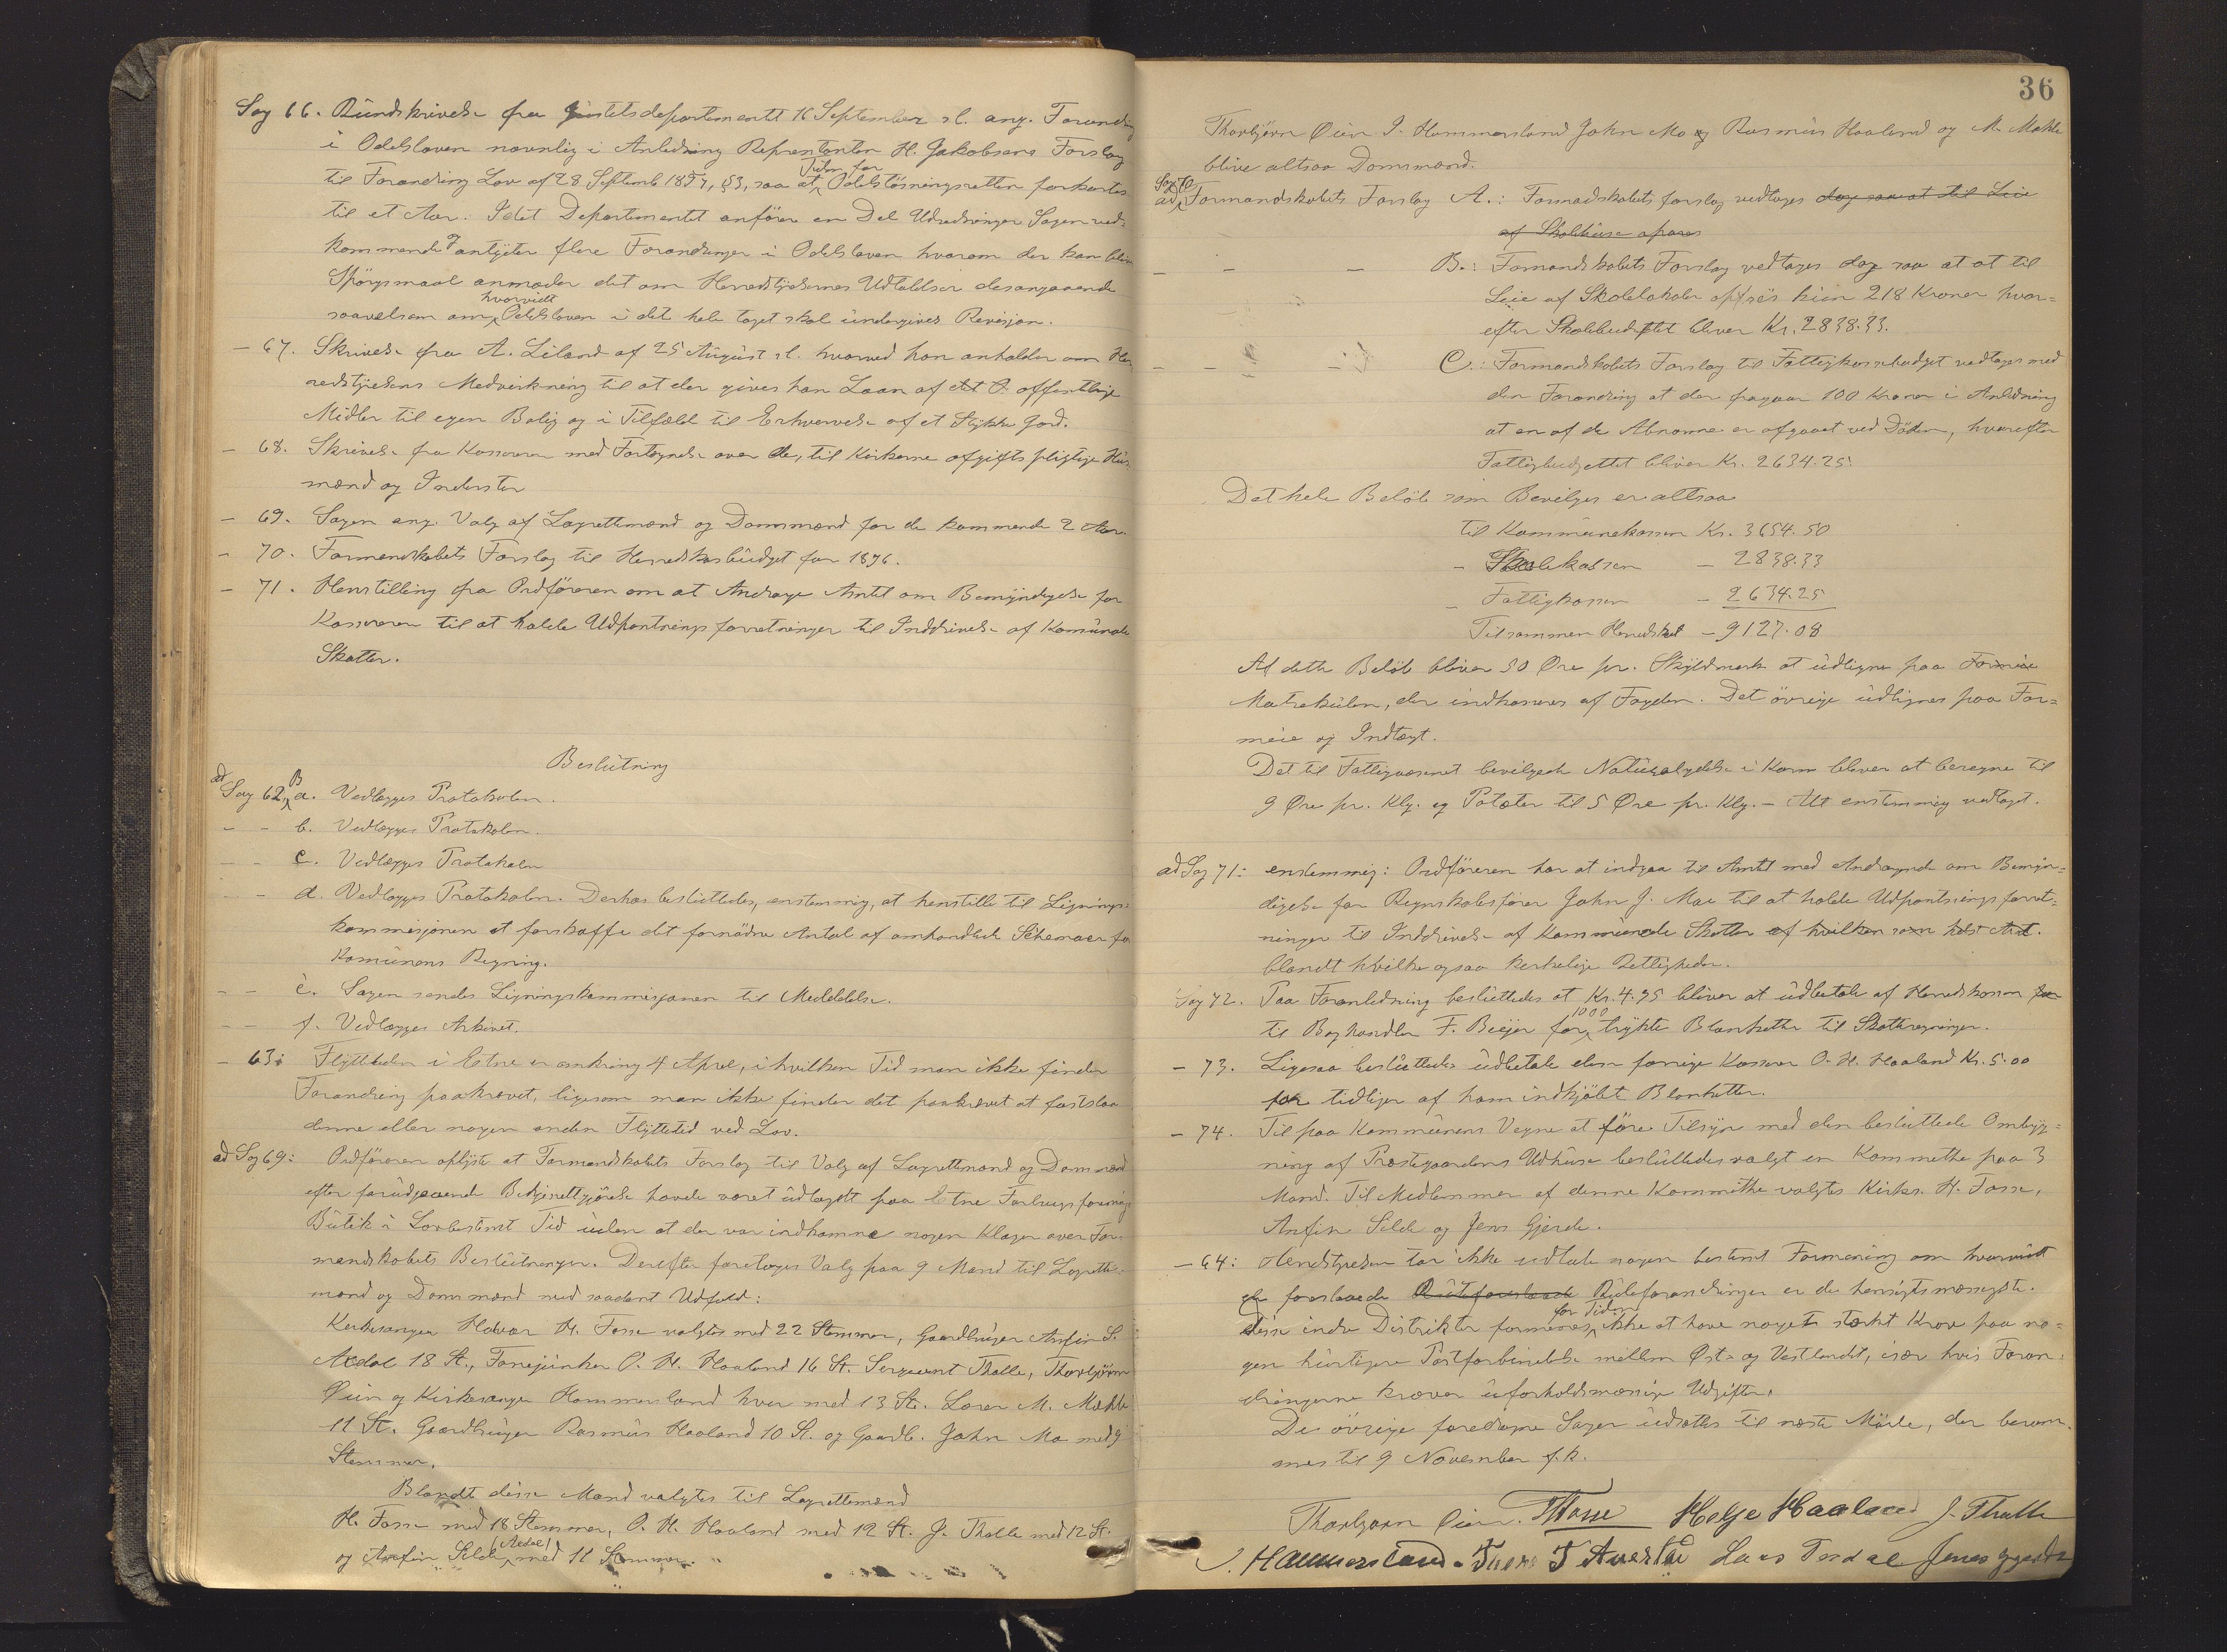 Sag 66. Rundskrivelse fra Justitsdepartementet 16 September d. ang. Forandring
i Odelsloven navnlig i Anledning Repræsentanten H. Jakobsens Forslag
til Forandring Lov af 28 Septemb 1857, §3, saa at Tiden for Odelsløsningsretten forkortes
til et Aar. Idet Departementet anfører en Del Udredninger Sagen ved-
kommende antyder flere Forandringer i Odelsloven hvorom der kan blive
Spørgsmaal anmoder det om Herredstyrelsernes Udtalelser desangaaende
saavelsom om hvorvidt Odelsloven i det hele taget skal undergives Revisjon.
- 67. Skrivelse fra A. Leland af 25 August d. hvorved han anholder om Her-
redstyrelsens Medvirkning til at der gives han Laan af det O. offentlige
Midler til egen Bolig og i Tilfælde til Erhvervelse af et Stykke Jord.
- 68. Skrivelse fra Kasserer med Fortegnelse over de, til Kirkerne afgiftspligtige Hus-
mænd og Inderster
- 69. Sagen ang. Valg af Lagrettemænd og Domsmænd for de kommende 2 Aar.
- 70. Formandskabets Forslag til Herredskasbudget for 1896.
- 71. Henstilling fra Ordføreren om at Andrage Amtet om Bemyndigelse for
Kassereren til at holde Udpantningsforretninger til Inddrivelse af Komunale
Skatter.
Beslutning
ad Sag 62, B a. Vedlægges Protokolen.
- - b. Vedlægges Protokolen.
- - c. Vedlægges Protokolen
- - d. Vedlægges Protokolen. Derhos besluttedes, enstemmig, at henstille til Lignings-
kommisjonen at forskaffe det fornødne Antal af omhandlede Schemaer for
Komunens Regning.
- - e. Sagen sendes Ligningskommisjonen til Meddelelse.
- - f. Vedlægges Arkivet.
- 63: Flyttetiden i Etne er omkring 4 April, i hvilken Tid man ikke finder
Forandring paakrævet, ligesom man ikke finder det paakrævet at fastslaa
denne eller nogen anden Flyttetid ved Lov.
ad Sag 69: Ordføreren oplyste at Formandskabets Forslag til Valg af Lagrettemænd og Domsmænd
efter forudgaaende Bekjendtgjørelse havde været udlagdt paa Etne Forbrugsforenings
Butik i Lovbestemt Tid uden at der var indkomne nogen Klager over For-
mandskabets Beslutninger. Derefter foretoges Valg paa 9 Mænd til Lagrette-
mænd og Domsmænd med saadant Udfald:
Kirkesanger Halvor H. Fosse valgtes med 22 Stemmer, Gaardbruger Anfin S.
Ædal 18 St., Fanejunker O. H. Haaland 16 St. Sergeant Tholle, Thorbjørn
Øien og Kirkesanger Hammersland hver med 13 St. Lærer M. Mæhle
11 St. Gaardbruger Rasmus Haaland 10 St. og Gaardb. John Mo med 9
Stemmer.
Blandt disse Mænd valgtes til Lagrettemænd
H. Fosse med 18 Stemmer, O. H. Haaland med 12 St. J. Tholle med 12 St.
og Anfin Selde (Ædal) med 11 Stemmer.
36
Thorbjørn Øien I. Hammersland John Mo og Rasmus Haaland og M. Mæhle
blive altsaa Domsmænd.
ad Sag 70 Formandskabets Forslag A.: Formandskabets forslag vedtages dog saa at til Leie
af Skolehuse opføres
- - - B.: Formandskabets Forslag vedtages dog saa at at til
Leie af Skolelokaler opføres kun 218 Kroner hvor-
efter Skolebudgettet bliver Kr. 2838.33.
- - - C.: Formandskabets Forslag til Fattigkassebudget vedtages med
den Forandring at der fragaar 100 Kroner i Anledning
at en af de Abnorme er afgaaet ved Døden, hvorefter
Fattigbudgettet bliver Kr. 2634.25.
Det hele Beløb som Bevilges er altsaa
til Kommunekassen Kr. 3654.50
- Skolekassen - 2838.33
- Fattigkassen - 2634.25
Tilsammen Herredsskat - 9127.08
Af dette Beløb bliver 50 Øre pr. Skyldmark at udligne paa Formue
Matrikulen, der indkasseres af Fogden. Det øvrige udlignes paa For-
mue og Indtægt.
Det til Fattigvæsenet bevilgede Naturalydelse i Korn bliver at beregne til
9 Øre pr. Klg. og Poteter til 5 Øre pr. Klg. - Alt enstemmig vedtaget.
ad Sag 71: enstemmig: Ordføreren har at indgaa til Amtet med Andragende om Bemyn-
digelse for Regnskabsfører John J. Moe til at holde Udpantningsforret-
ninger til Inddrivelse af Kommunale Skatter af hvilken som helst Art.
blandt hvilke ogsaa kirkelige Rettigheder.
Sag 72. Paa Foranledning besluttedes at Kr. 4.95 bliver at udbetale af Herredskassen for
til Boghandler F. Beijer for 1000 trykte Blanketter til Skatteregninger.
- 73. Ligesaa besluttedes udbetale den forrige Kasserer O. H. Haaland Kr. 5.00
for tidligere af ham indkjøbt Blanketter.
- 74. Til paa Kommunens Vegne at føre Tilsyn med den besluttede Ombyg-
ning af Præstegaardens Udhuse besluttedes valgt en Kommitte paa 3
Mand. Til Medlemmer af denne Kommitte valgtes Kirkes. H. Fosse,
Anfin Selde og Jens Gjerde.
- 64: Herredstyrelsen tør ikke udtale nogen bestemt Formening om hvorvidt
de foreslaaede Ruteforandringer er de hensigtsmæssigste.
Disse indre Distrikter formenes for Tiden ikke at have noget stærkt Krav paa no-
gen hurtigere Postforbindelse mellem Øst- og Vestlandet, især hvis Foran-
dringerne kræver uforholdsmæssige Udgifter.
De øvrige foredragne Sager udsættes til næste Møde, der beram-
mes til 9 November f.k.
Thorbjørn Øien. HFosse Helge Haaland J. Tholle
I. Hammersland. T Aarstad Lars Tesdal Jens Gjerde